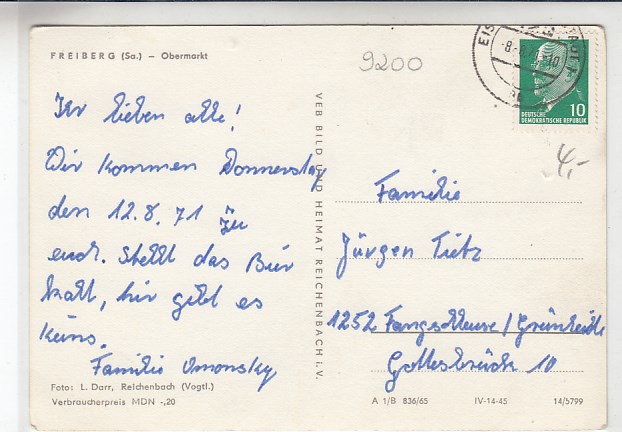 FREIBERG (Sa.) – Obermarkt
9200
Ihr lieben alle!
Wir kommen Donnerstag
den 12.8.71 zu
euch. Stellt das Bier
kalt, hir gibt es
keins.
Familie Omonsky
Foto: L. Darr, Reichenbach (Vogtl.)
Verbraucherpreis MDN -,20
VEB BILD UND HEIMAT REICHENBACH i. V.
DEUTSCHE
DEMOKRATISCHE REPUBLIK
10
4,-
Familie
Jürgen Tietz
1252 Fangschleuse / Grünheide
Gottesbrück 10
A 1/B 836/65 IV-14-45 14/5799